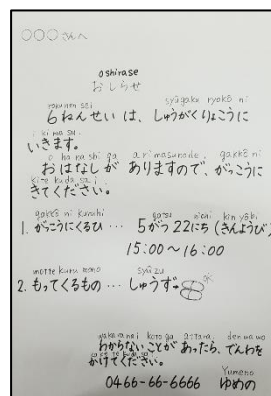 ○○○さんへ
oshirase
おしらせ
rokunen sei syûgaku ryokô ni
6ねんせいは、しゅうがくりょこうに
ikimasu.
いきます。
ohanashi ga arimasunode, gakkô ni
おはなしが ありますので、がっこうに
kite kudasai.
きてください。
gakkô ni kuruhi gatsu nichi kin yôbi
1. がっこうにくるひ… 5がつ22にち(きんようび)
15:00〜16:00
motte kuru mono syûzu
2. もってくるもの… しゅうず
wakaranai koto ga attara, denwa wo
わからないことが あったら、でんわを
かけてください。
Yumeno
0466-66-6666 ゆめの